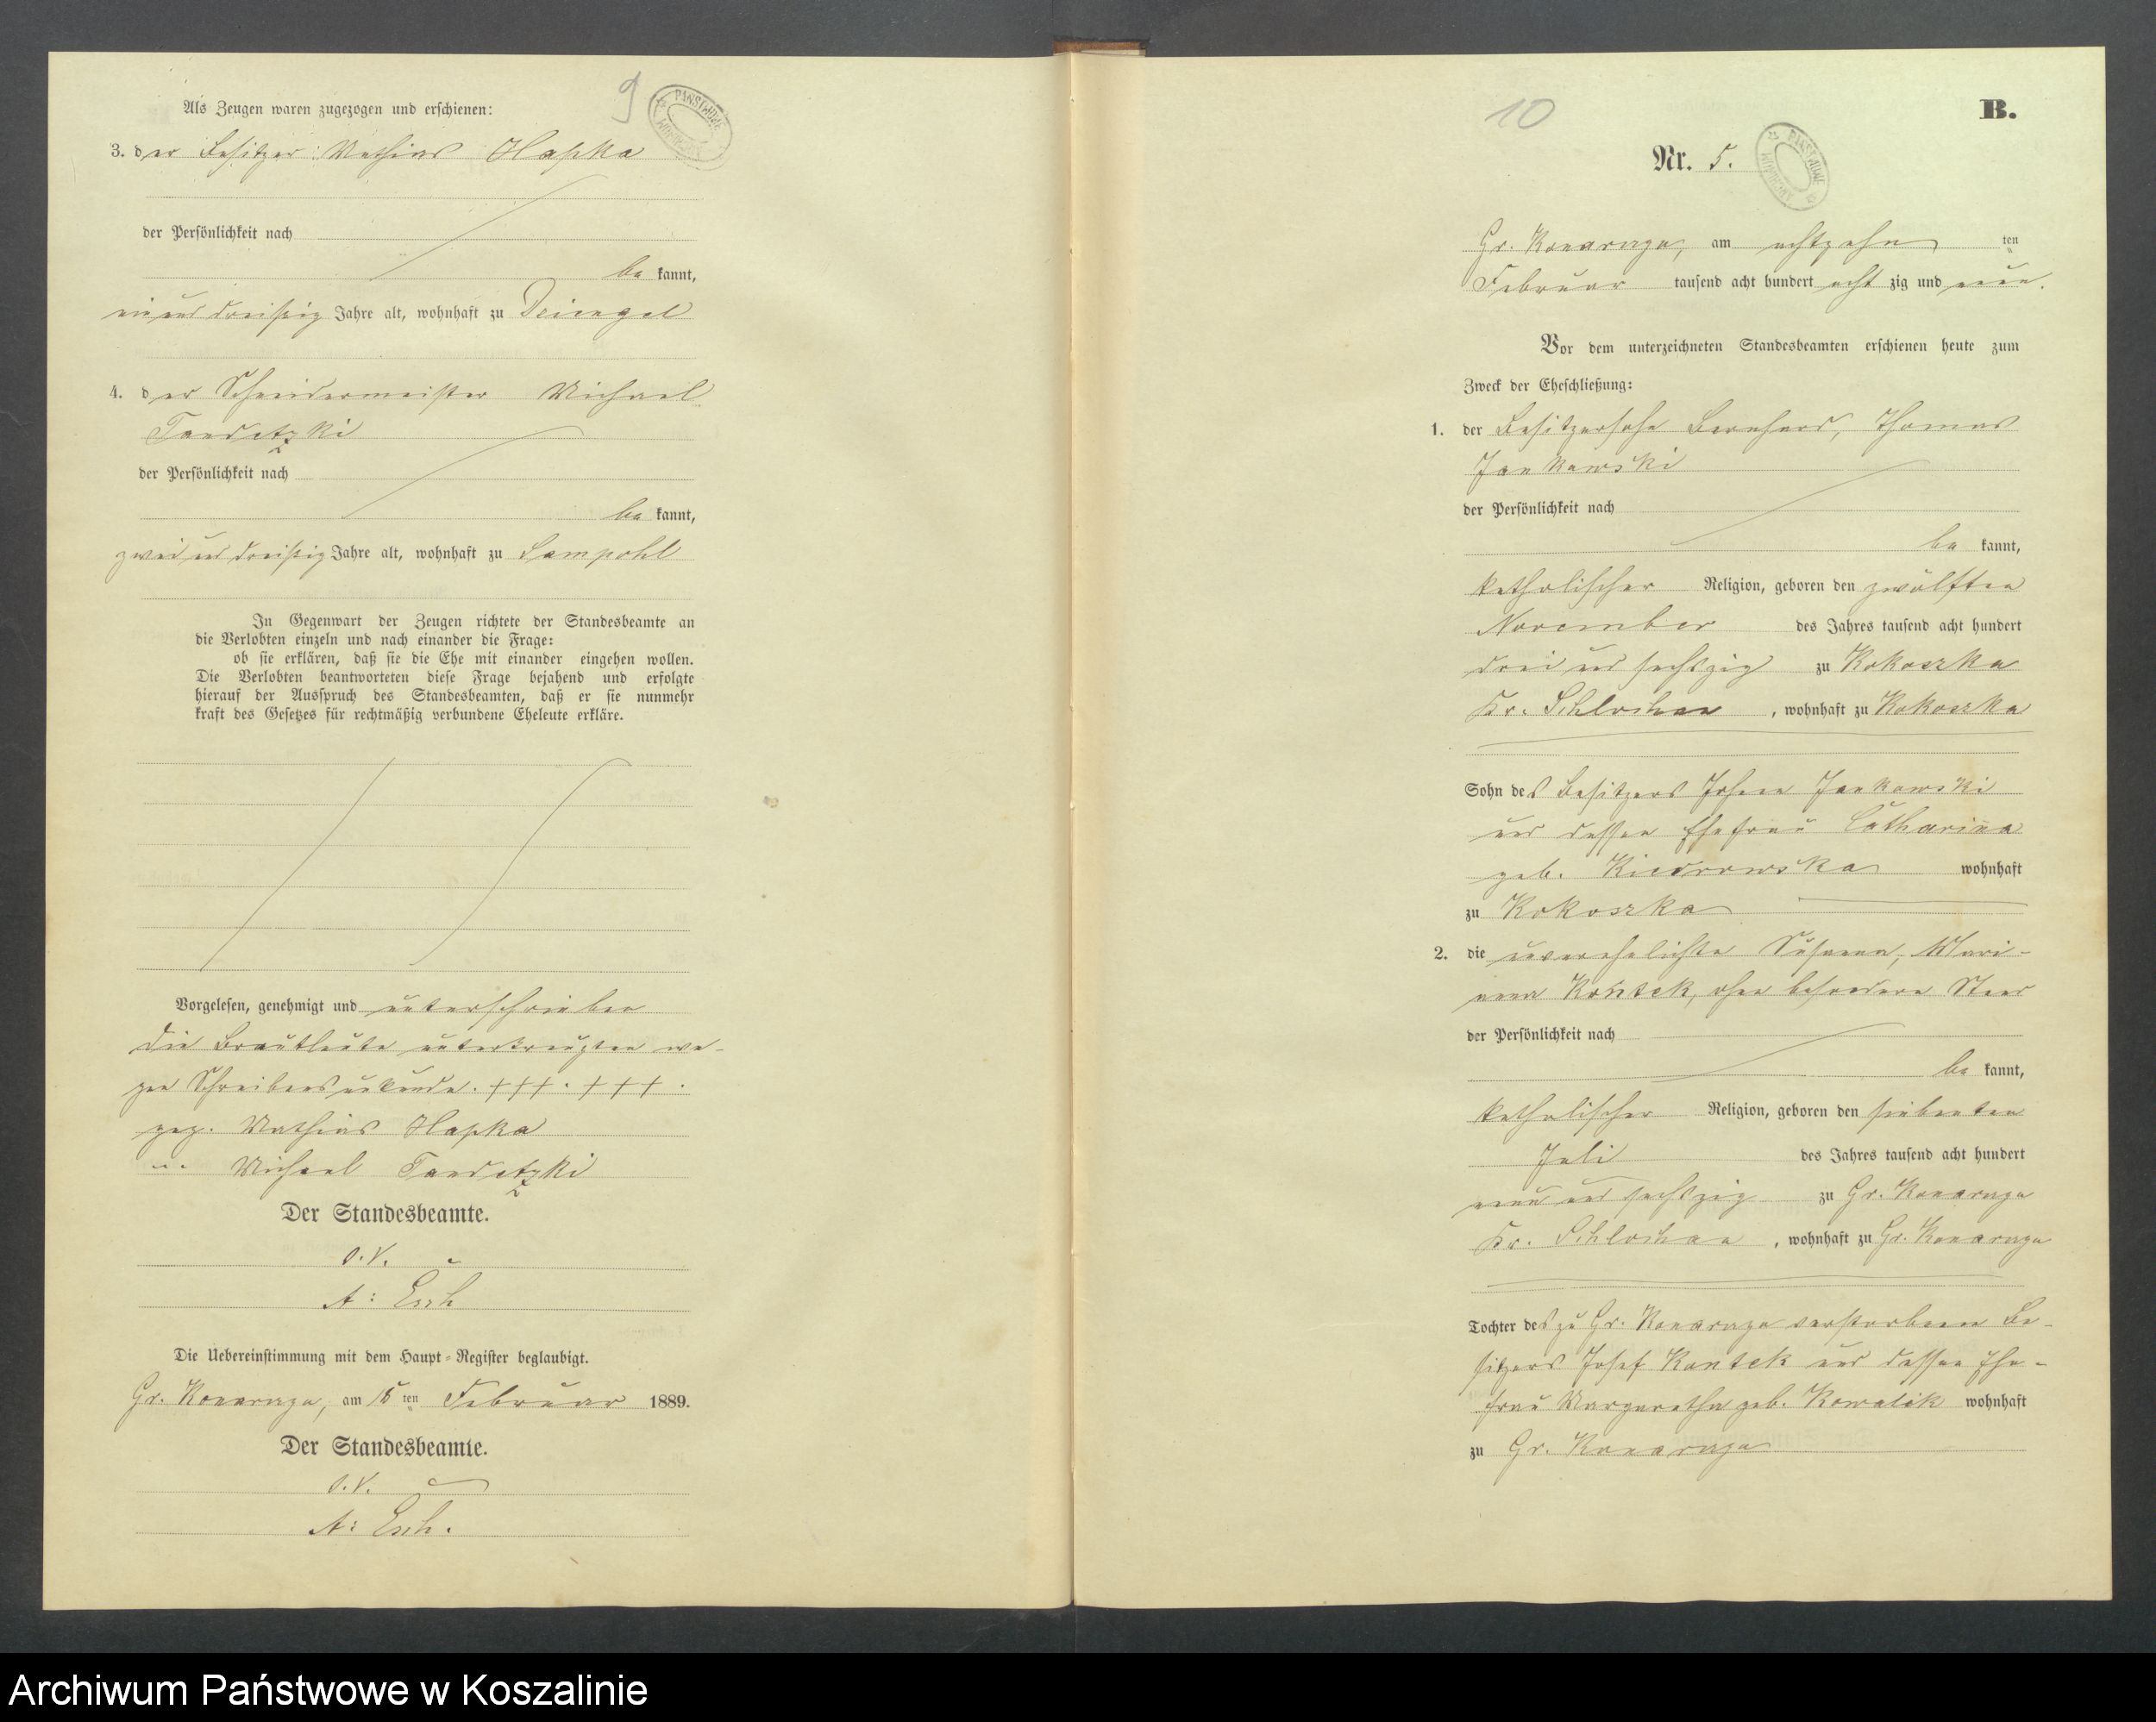 9
Als Zeugen waren zugezogen und erschienen:
3. der Besitzer Mathias Hapka
der Persönlichkeit nach
be kannt,
ein und dreißig Jahre alt, wohnhaft zu
4. der Schneidermeister Michael
Tandetzki
der Persönlichkeit nach
be kannt,
zwei und dreißig Jahre alt, wohnhaft zu Sampohl
In Gegenwart der Zeugen richtete der Standesbeamte an
die Verlobten einzeln und nach einander die Frage:
ob sie erklären, daß sie die Ehe mit einander eingehen wollen.
Die Verlobten beantworteten diese Frage bejahend und erfolgte
hierauf der Ausspruch des Standesbeamten, daß er sie nunmehr
kraft des Gesetzes für rechtmäßig verbundene Eheleute erkläre.
Vorgelesen, genehmigt und unterschrieben
die Brautleute unterkreuzten we-
gen Schreibensunkunde. +++ . +++ .
gez. Mathias Hapka
" " Michael Tandetzki
Der Standesbeamte.
A: Esch
Die Uebereinstimmung mit dem Haupt-Register beglaubigt.
Gr. Konarzyn, am 15 ten Februar 1889.
Der Standesbeamte.
A: Esch.
10
B.
Nr. 5.
Gr. Konarzyn, am achtzehn ten
Februar tausend acht hundert acht zig und neun.
Vor dem unterzeichneten Standesbeamten erschienen heute zum
Zweck der Eheschließung:
1. der Besitzersohn Bernhard, Thomas
Jankowski
der Persönlichkeit nach
be kannt,
katholischer Religion, geboren den zwölften
November des Jahres tausend acht hundert
drei und sechszig zu Kokoszka
Kr. Schlochau, wohnhaft zu Kokoszka
Sohn des Besitzers Johann Jankowski
und dessen Ehefrau Catharina
geb. Kiedrowska wohnhaft
zu Kokoszka
2. die unverehelichte Susanna, Mari-
anna Kontek, ohne besonderen Stand
der Persönlichkeit nach
be kannt,
katholischer Religion, geboren den siebenten
Juli des Jahres tausend acht hundert
neun und sechszig zu Gr. Konarzyn
Kr. Schlochau, wohnhaft zu Gr. Konarzyn
Tochter des zu Gr. Konarzyn verstorbenen Be-
sitzers Josef Kontek und dessen Ehe-
frau Margaretha geb. Kowalik wohnhaft
zu Gr. Konarzyn
Archiwum Państwowe w Koszalinie